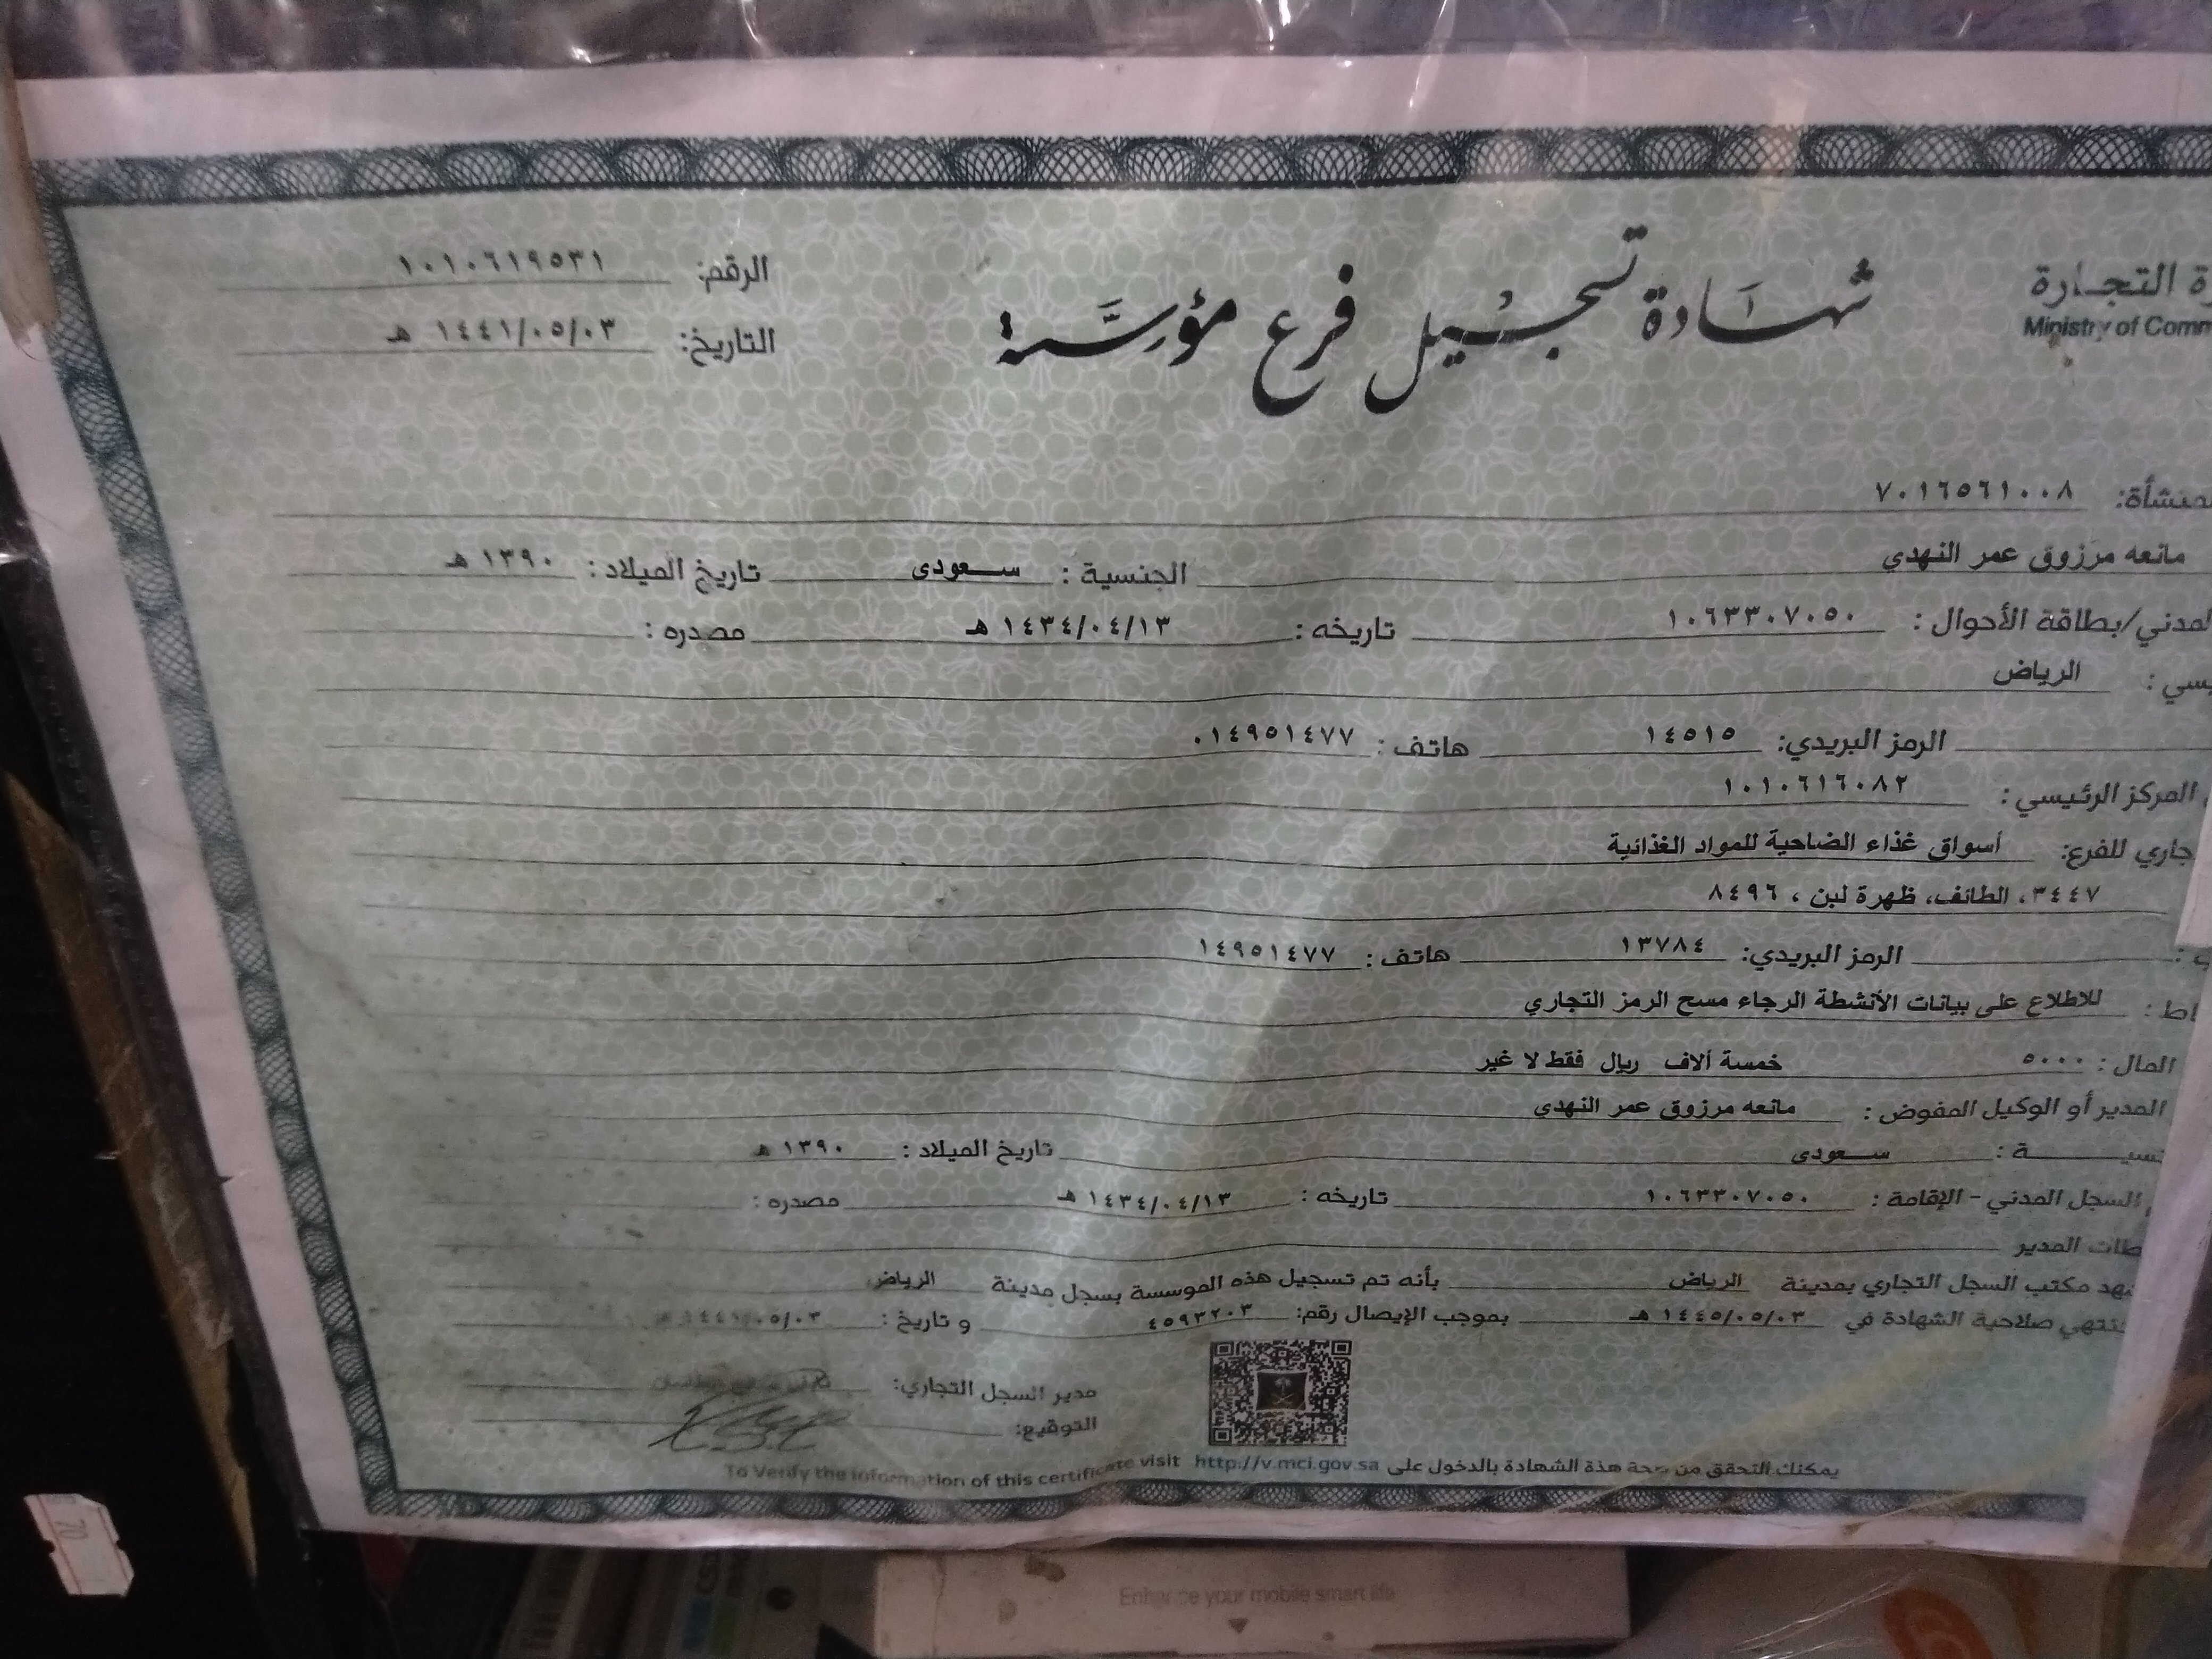 التجارة
Ministry of
شهادة تسجيل فرع مؤسسة
الرقم: ١٠١٠٦١٩٥٣١
التاريخ: ١٤٤١/٠٥/٠٣ هـ
٧٠١٦٥٦١٠٠٨
مانعه مرزوق عمر النهدي الجنسية : سعودى تاريخ الميلاد : ١٣٩٠ هـ
المدني/بطاقة الأحوال : ١٠٦٣٣٠٧٠٥٠ تاريخه : ١٤٣٤/٠٤/١٣ هـ مصدره :
الرياض
الرمز البريدي: ١٤٥١٥ هاتف : ٠١٤٩٥١٤٧٧
المركز الرئيسي : ١٠١٠٦١٦٠٨٢
للفرع: أسواق غذاء الضاحية للمواد الغذائية
٣٤٤٧، الطائف، ظهرة لبن ، ٨٤٩٦
الرمز البريدي: ١٣٧٨٤ هاتف : ١٤٩٥١٤٧٧
للاطلاع على بيانات الأنشطة الرجاء مسح الرمز التجاري
المال : ٥٠٠٠ خمسة آلاف ريال فقط لا غير
المدير أو الوكيل المفوض : مانعه مرزوق عمر النهدي
سعودى تاريخ الميلاد : ١٣٩٠ هـ
السجل المدني - الإقامة : ١٠٦٣٣٠٧٠٥٠ تاريخه : ١٤٣٤/٠٤/١٣ هـ مصدره :
المدير
مكتب السجل التجاري بمدينة الرياض بأنه تم تسجيل هذه الموسسة بسجل مدينة الرياض
صلاحية الشهادة في ١٤٤٥/٠٥/٠٣ هـ بموجب الإيصال رقم: و تاريخ :
مدير السجل التجاري:
التوقيع:
يمكنك التحقق من صحة هذه الشهادة بالدخول على http://v.mci.gov.sa To Verify the information of this certificate visit
Enhance your mobile smart life